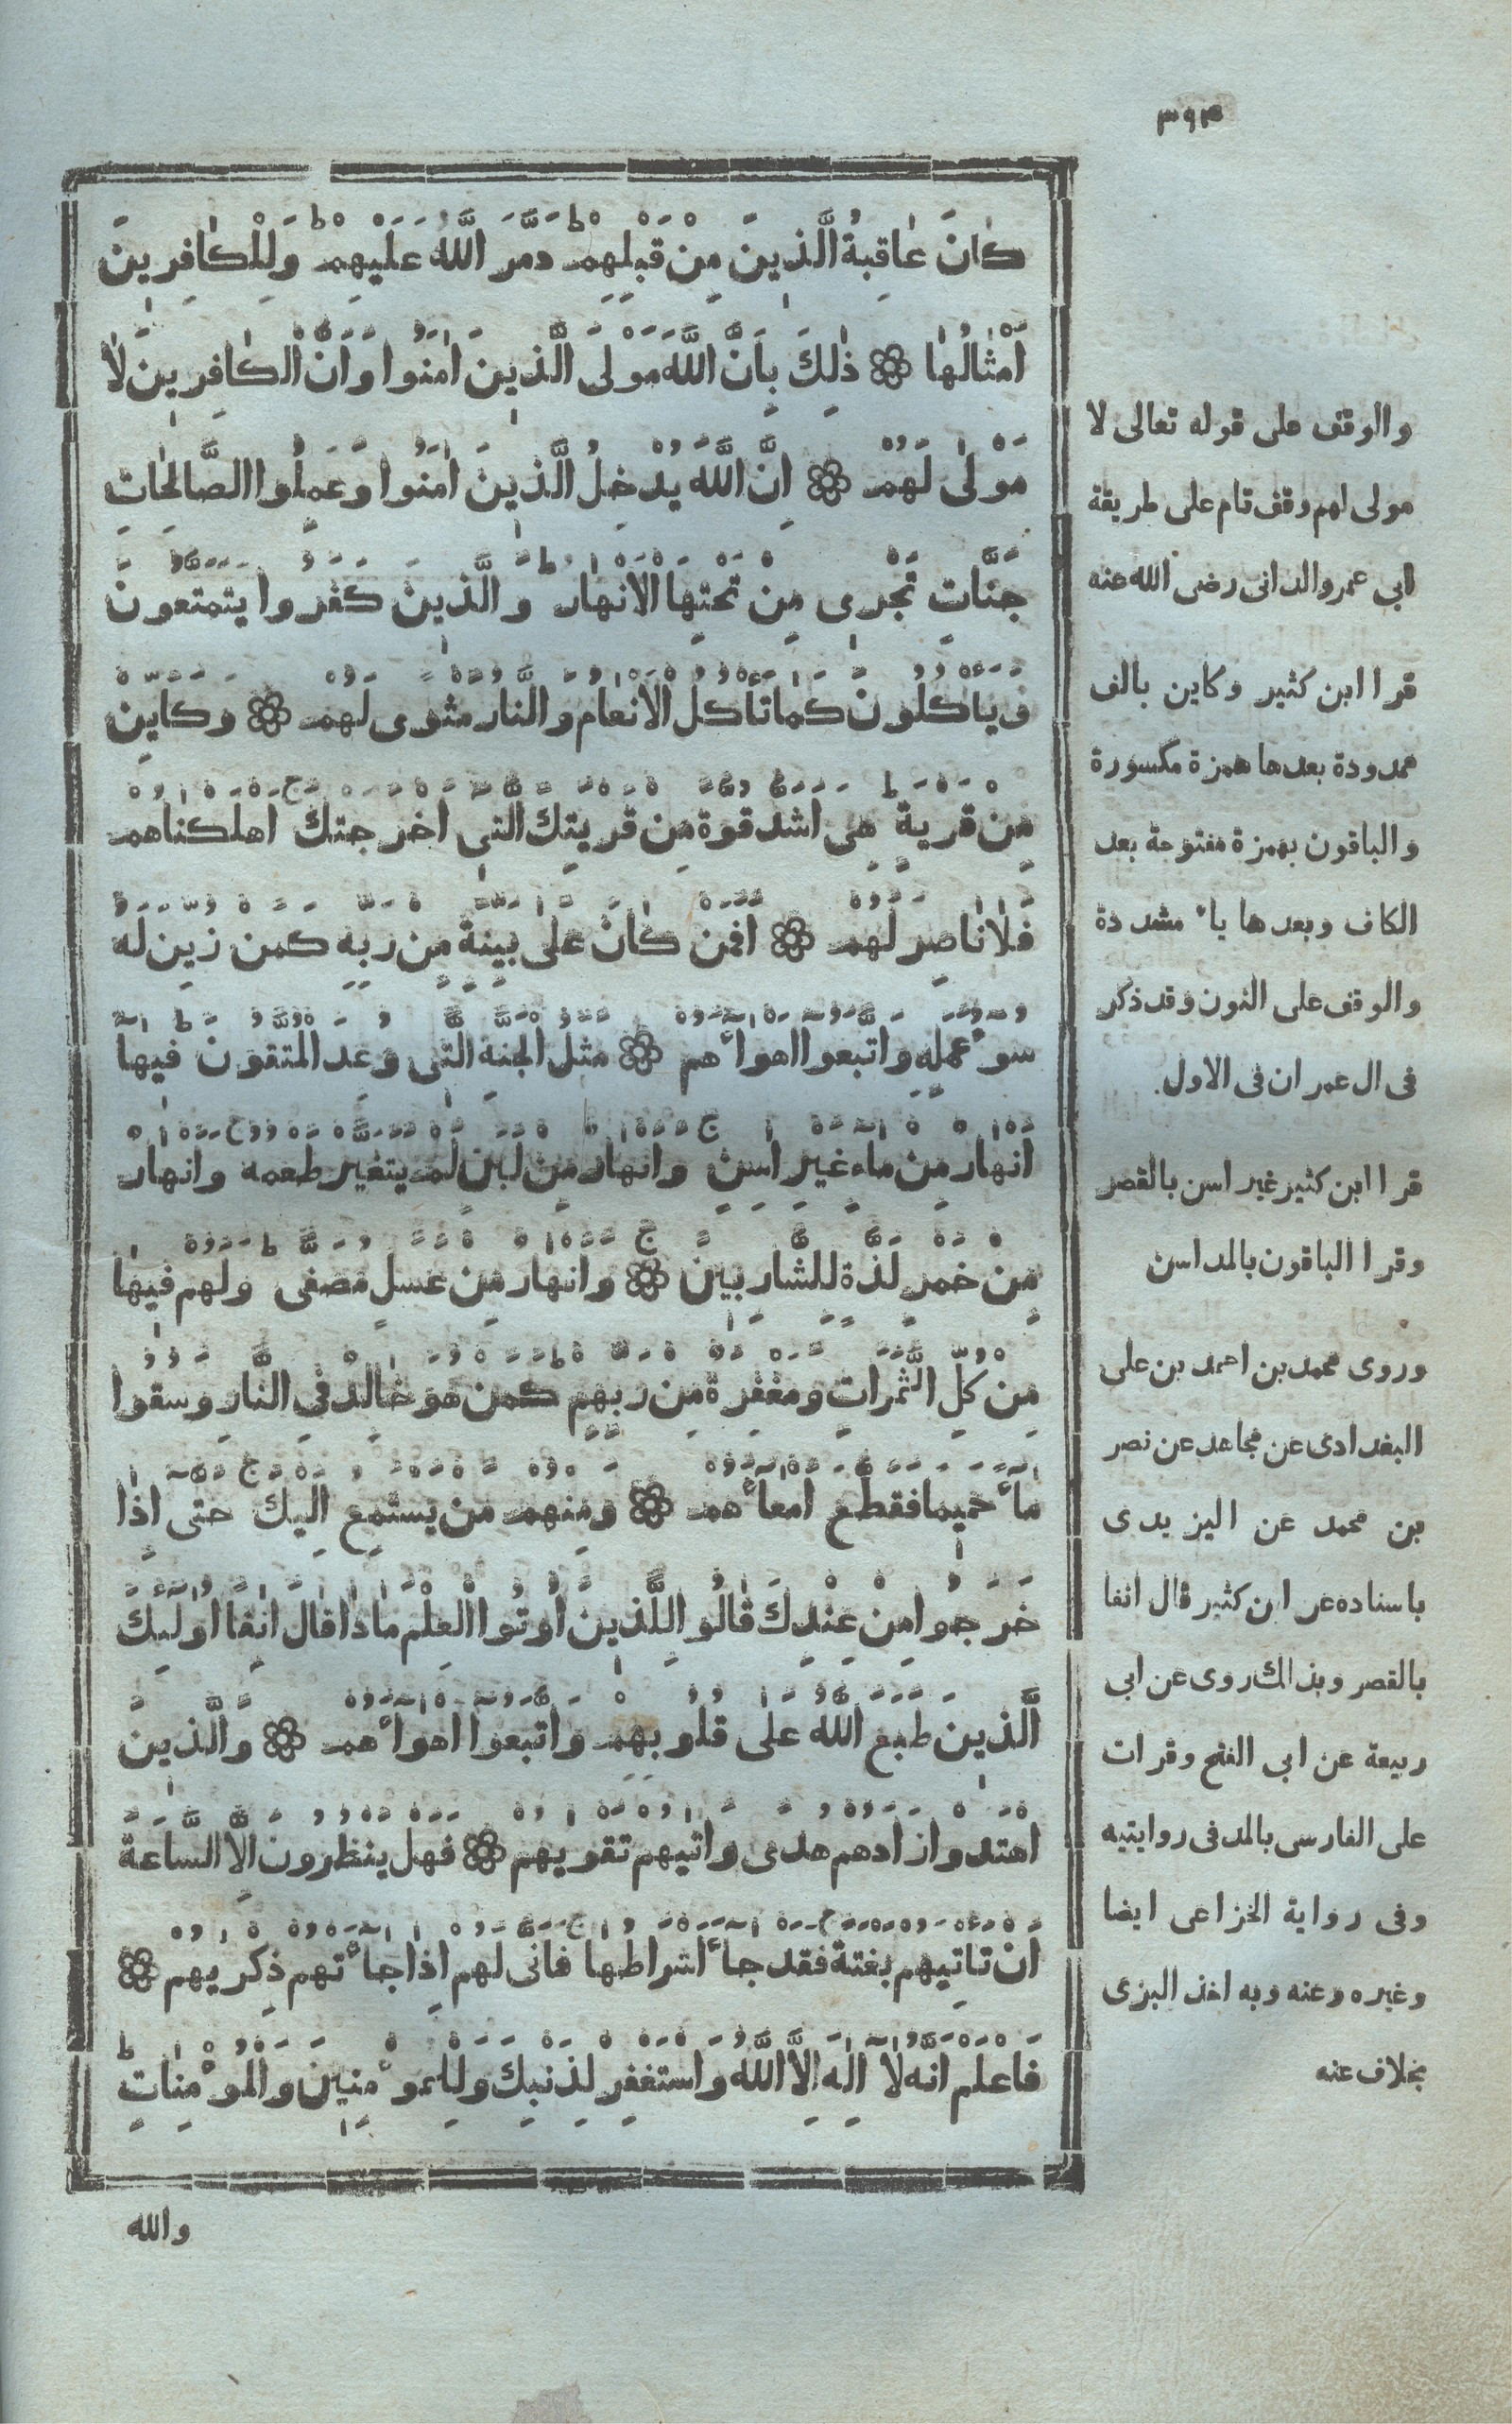 كَانَ عَاقِبَةُ الَّذِينَ مِنْ قَبْلِهِمْ ط دَمَّرَ اللَّهُ عَلَيْهِمْ ط وَلِلْكَافِرِينَ
اَمْثَالُهَا ۞ ذٰلِكَ بِاَنَّ اللَّهَ مَوْلَى الَّذِينَ اٰمَنُوا وَاَنَّ الْكَافِرِينَ لَا
مَوْلٰى لَهُمْ ۞ اِنَّ اللَّهَ يُدْخِلُ الَّذِينَ اٰمَنُوا وَعَمِلُوا الصَّالِحَاتِ
جَنَّاتٍ تَجْرِى مِنْ تَحْتِهَا الْاَنْهَارُ ط وَالَّذِينَ كَفَرُوا يَتَمَتَّعُونَ
وَيَاْكُلُونَ كَمَا تَاْكُلُ الْاَنْعَامُ وَالنَّارُ مَثْوًى لَهُمْ ۞ وَكَاَيِّنْ
مِنْ قَرْيَةٍ ط هِىَ اَشَدُّ قُوَّةً مِنْ قَرْيَتِكَ الَّتِى اَخْرَجَتْكَ ج اَهْلَكْنَاهُمْ
فَلَا نَاصِرَ لَهُمْ ۞ اَفَمَنْ كَانَ عَلٰى بَيِّنَةٍ مِنْ رَبِّهِ كَمَنْ زُيِّنَ لَهُ
سُوۤءُ عَمَلِهِ وَاتَّبَعُوا اَهْوَاۤءَهُمْ ۞ مَثَلُ الْجَنَّةِ الَّتِى وُعِدَ الْمُتَّقُونَ ط فِيهَا
اَنْهَارٌ مِنْ مَاءٍ غَيْرِ اٰسِنٍ ج وَاَنْهَارٌ مِنْ لَبَنٍ لَمْ يَتَغَيَّرْ طَعْمُهُ ج وَاَنْهَارٌ
مِنْ خَمْرٍ لَذَّةٍ لِلشَّارِبِينَ ۞ ج وَاَنْهَارٌ مِنْ عَسَلٍ مُصَفًّى ط وَلَهُمْ فِيهَا
مِنْ كُلِّ الثَّمَرَاتِ وَمَغْفِرَةٌ مِنْ رَبِّهِمْ ط كَمَنْ هُوَ خَالِدٌ فِى النَّارِ وَسُقُوا
مَاۤءً حَمِيمًا فَقَطَّعَ اَمْعَاۤءَهُمْ ۞ وَمِنْهُمْ مَنْ يَسْتَمِعُ اِلَيْكَ ج حَتّٰى اِذَا
خَرَجُوا مِنْ عِنْدِكَ قَالُوا لِلَّذِينَ اُوتُوا الْعِلْمَ مَاذَا قَالَ اٰنِفًا اُولٰۤئِكَ
الَّذِينَ طَبَعَ اللَّهُ عَلٰى قُلُوبِهِمْ وَاتَّبَعُوا اَهْوَاۤءَهُمْ ۞ وَالَّذِينَ
اهْتَدَوْا زَادَهُمْ هُدًى وَاٰتٰيهُمْ تَقْوٰيهُمْ ۞ فَهَلْ يَنْظُرُونَ اِلَّا السَّاعَةَ
اَنْ تَاْتِيَهُمْ بَغْتَةً ج فَقَدْ جَاۤءَ اَشْرَاطُهَا ج فَاَنّٰى لَهُمْ اِذَا جَاۤءَتْهُمْ ذِكْرٰيهُمْ ۞
فَاعْلَمْ اَنَّهُ لَاۤ اِلٰهَ اِلَّا اللَّهُ وَاسْتَغْفِرْ لِذَنْبِكَ وَلِلْمُوْمِنِينَ وَالْمُوْمِنَاتِ ط
والله
والوقف على قوله تعالى لا
مولى لهم وقف تام على طريقة
ابى عمرو الدانى رضى الله عنه
قرا ابن كثير وكاين بالف
ممدودة بعدها همزة مكسورة
والباقون بهمزة مفتوحة بعد
الكاف وبعدها ياء مشددة
والوقف على النون وقد ذكر
فى ال عمران فى الاول.
قرا ابن كثير غير اسن بالقصر
وقرا الباقون بالمد اسن
وروى محمد بن احمد بن على
البغدادى عن مجاهد عن نصر
بن محمد عن اليزيدى
باسناده عن ابن كثير قال انفا
بالقصر وبذالك روى عن ابى
ربيعة عن ابى الفتح وقرات
على الفارسى بالمد فى روايتيه
وفى رواية الخزاعى ايضا
وغيره وعنه وبه اخذ البزى
بخلاف عنه